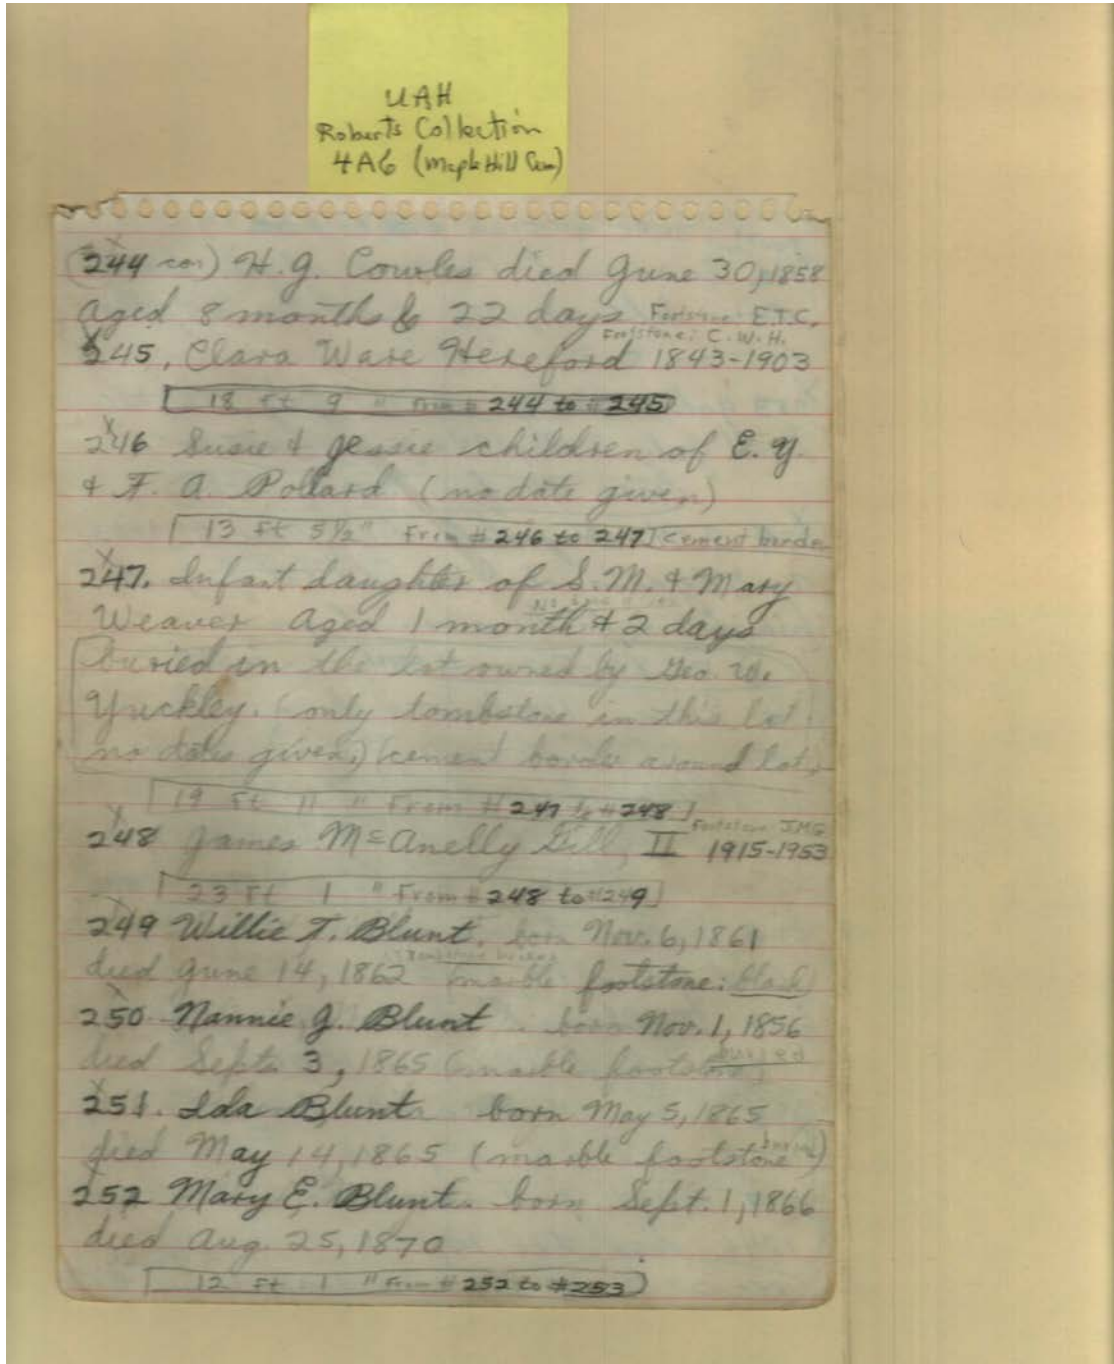 UAH
Roberts Collection
4A6 (Maple Hill Cem)
(244 con) H.G. Cowles died June 30, 1858
aged 8 months & 22 days Footstone: E.T.C.
Footstone: C.W.H.
245, Clara Ware Hereford 1843-1903
18 ft 9 " From # 244 to # 245
246 Susie & Jessie children of E. Y.
& F. A. Pollard (no date given)
13 ft 5 1/2 " From # 246 to 247 (cement border
247. Infant daughter of S.M. & Mary
Weaver Aged 1 month & 2 days
buried in the lot owned by Geo. W.
Yuckley. (only tombstone in this lot
no dates given.) (cement border around lot.)
19 ft 11 " From # 247 to # 248
Footstone JMG
248 James McAnelly Gill, II 1915-1953
23 ft 1 " From # 248 to # 249
249 Willie T. Blunt. born Nov. 6, 1861
died June 14, 1862 (marble footstone: black)
250 Nannie J. Blunt. born Nov. 1, 1856
buried
died Sept. 3, 1865 (marble footstone)
251. Ida Blunt. born May 5, 1865
buried
died May 14, 1865 (marble footstone)
252 Mary E. Blunt. born Sept. 1, 1866
died Aug. 25, 1870
12 ft 1 " From # 252 to # 253)